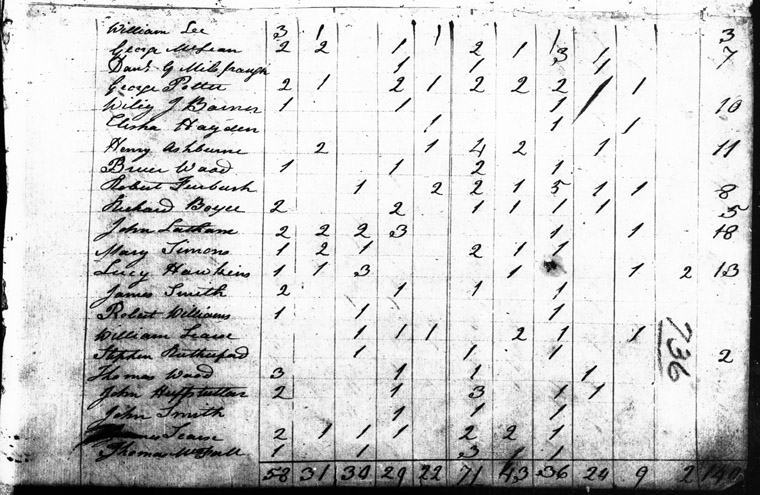 William Lee 3 1 1 1 3
George McLean 2 2 1 2 1 3 1 7
Danl G 1 1 1
George Potter 2 1 2 1 2 2 2 1 1
Wiley J Barner 1 1 1 10
Elisha Hayden 1 1 1
Henry Ashburne 2 1 4 2 1 11
Brice Wood 1 1 2 1
Robert 1 2 2 1 5 1 1 8
Richard Boyce 2 2 1 1 1 1 5
John Latham 2 2 2 3 1 1 18
Mary Simons 1 2 1 2 1 1
Lucy Hawkins 1 1 3 1 1 2 13
James Smith 2 1 1 1
Robert Williams 1 1 1
William Lease 1 1 1 2 1 9
Stephen Rutherford 1 1 1 2
Thomas Wood 3 1 1 1
John Huffstutter 2 1 3 1 1
John Smith 1 1 1
Lease 2 1 1 1 2 2 1
Thomas 1 1 3 1 1
58 31 30 29 22 71 43 36 24 9 2
736